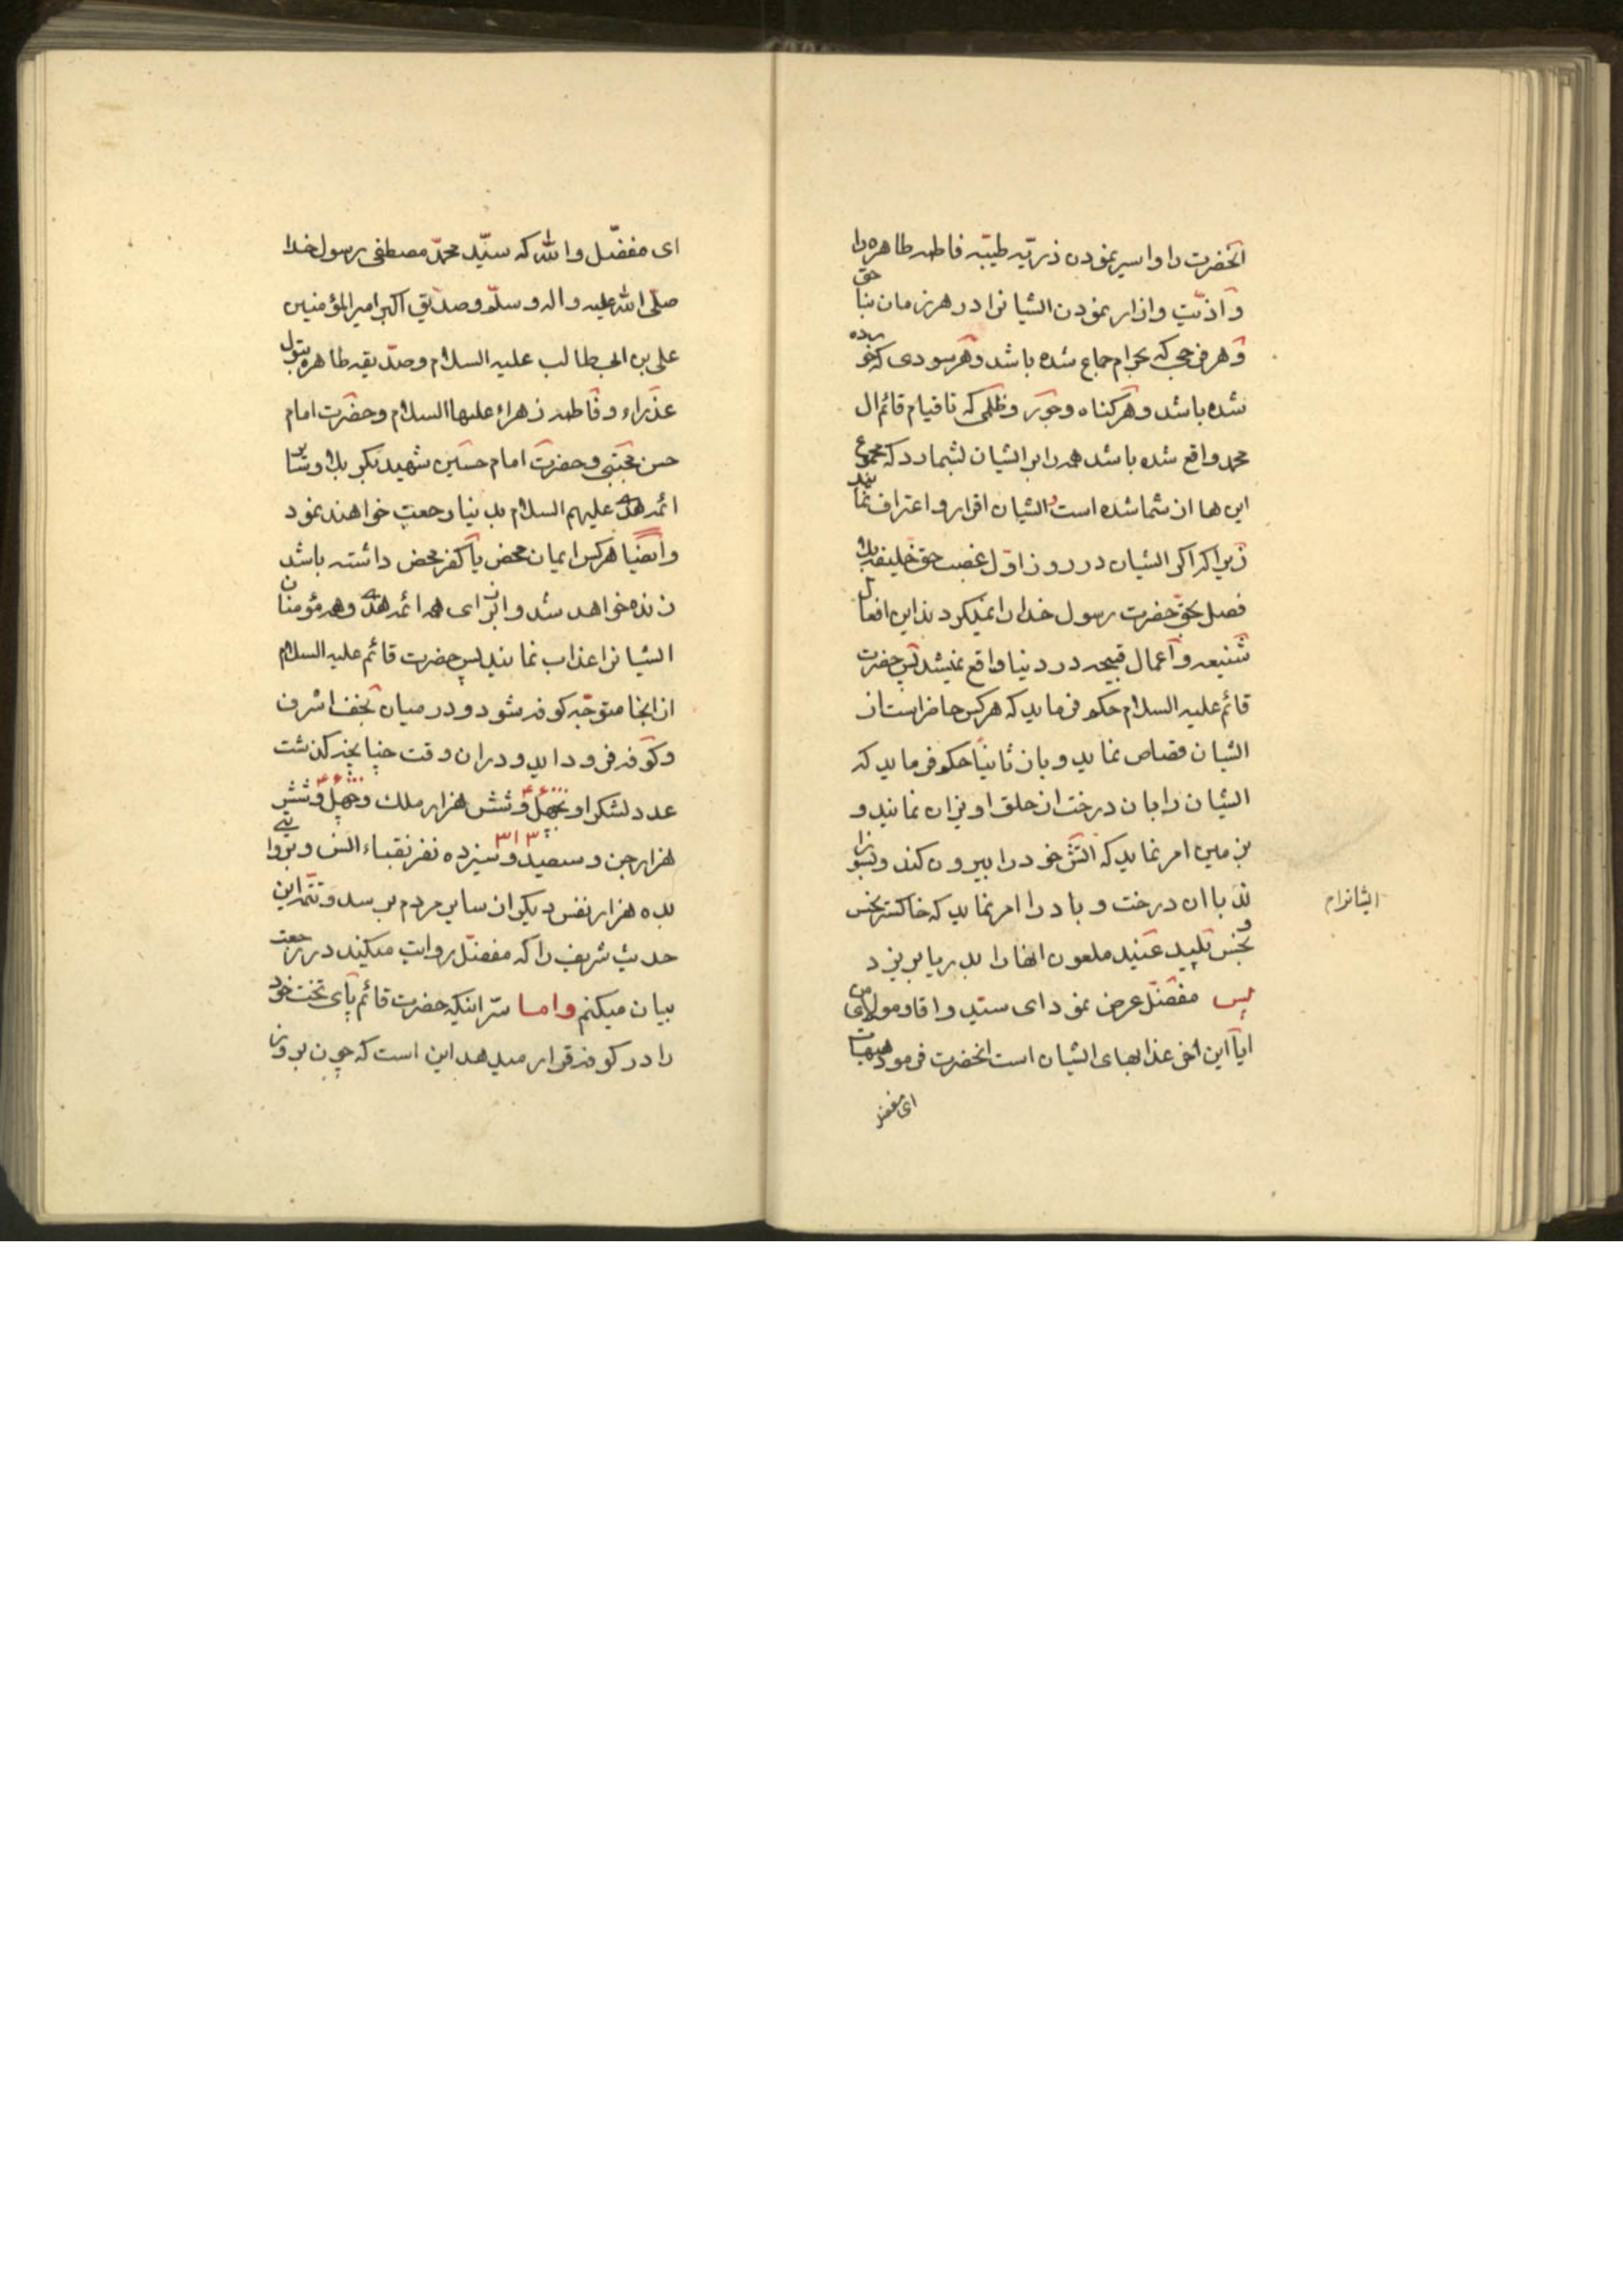 آنحضرت را و اسیر نمودن ذریّه طیّبه فاطمه طاهره را
و اذیّت و ازار نمودن ایشانرا در هر زمان بناحق
و هر فرجی که بحرام جماع شده باشد و هر سودی که خورده
شده باشد و هر کناه و جور و ظلمی که تا قیام قائم ال
محمد واقع شده باشد همه را بر ایشان بشمارد که مجموع
این ها از شما شده است و ایشان اقرار و اعتراف نمایند
زیرا که اکر ایشان در روز اوّل غصب حق خلیفه بلا
فصل بحق حضرت رسول خدا را نمیکردند این افعال
شنیعه و اعمال قبیحه در دنیا واقع نمیشد پس حضرت
قائم علیه السلام حکم فرماید که هرکس حاضر است از
ایشان قصاص نماید و باز ثانیاً حکم فرماید که
ایشان را بان درخت از حلق اویزان نمایند و
بزمین امر نماید که اتش خود را بیرون کند و بسوزا
ند با ان درخت و باد را امر نماید که خاکستر نحس
و نجس پلید عنید ملعون انها را بدریا بریزد
پس مفضّل عرض نمود ای سیّد و اقا و مولای من
ایا این اخر عذابهای ایشان است انحضرت فرمود هیهات
ای مفضل
ایشانرام
ای مفضّل والله که سیّد محمّد مصطفی رسول خدا
صلّی الله علیه و اله و سلّم و صدّیق اکبر امیر المؤمنین
علی بن ابی طالب علیه السلام و صدّیقه طاهره بتول
عذراء و فاطمه زهراء علیها السلام و حضرت امام
حسن مجتبی و حضرت امام حسین شهید بکربلا و سایر
ائمه هدی علیهم السلام بدنیا رجعت خواهند نمود
و ایضیا هرکس ایمان محض یا کفر محض داشته باشد
زنده خواهد شد و از برای همه ائمه هدی و همه مؤمنان
ایشانرا عذاب نمایند پس حضرت قائم علیه السلام
از انجا متوجّه کوفه شود و در میان نجف اشرف
و کوفه فرود اید و در ان وقت چنانچه کذشت
عدد لشکر او بچهل و شش هزار ملک و چهل و شش
هزار جن و سیصد و سیزده نفر نقباء انس و بروایتی
بده هزار نفس دیکر از سایر مردم برسد و تتمه این
حدیث شریف را که مفضّل روایت میکند در رجعت
بیان میکنم واما سرّ اینکه حضرت قائم پای تخت خود
را در کوفه قرار میدهد این است که چون بروز